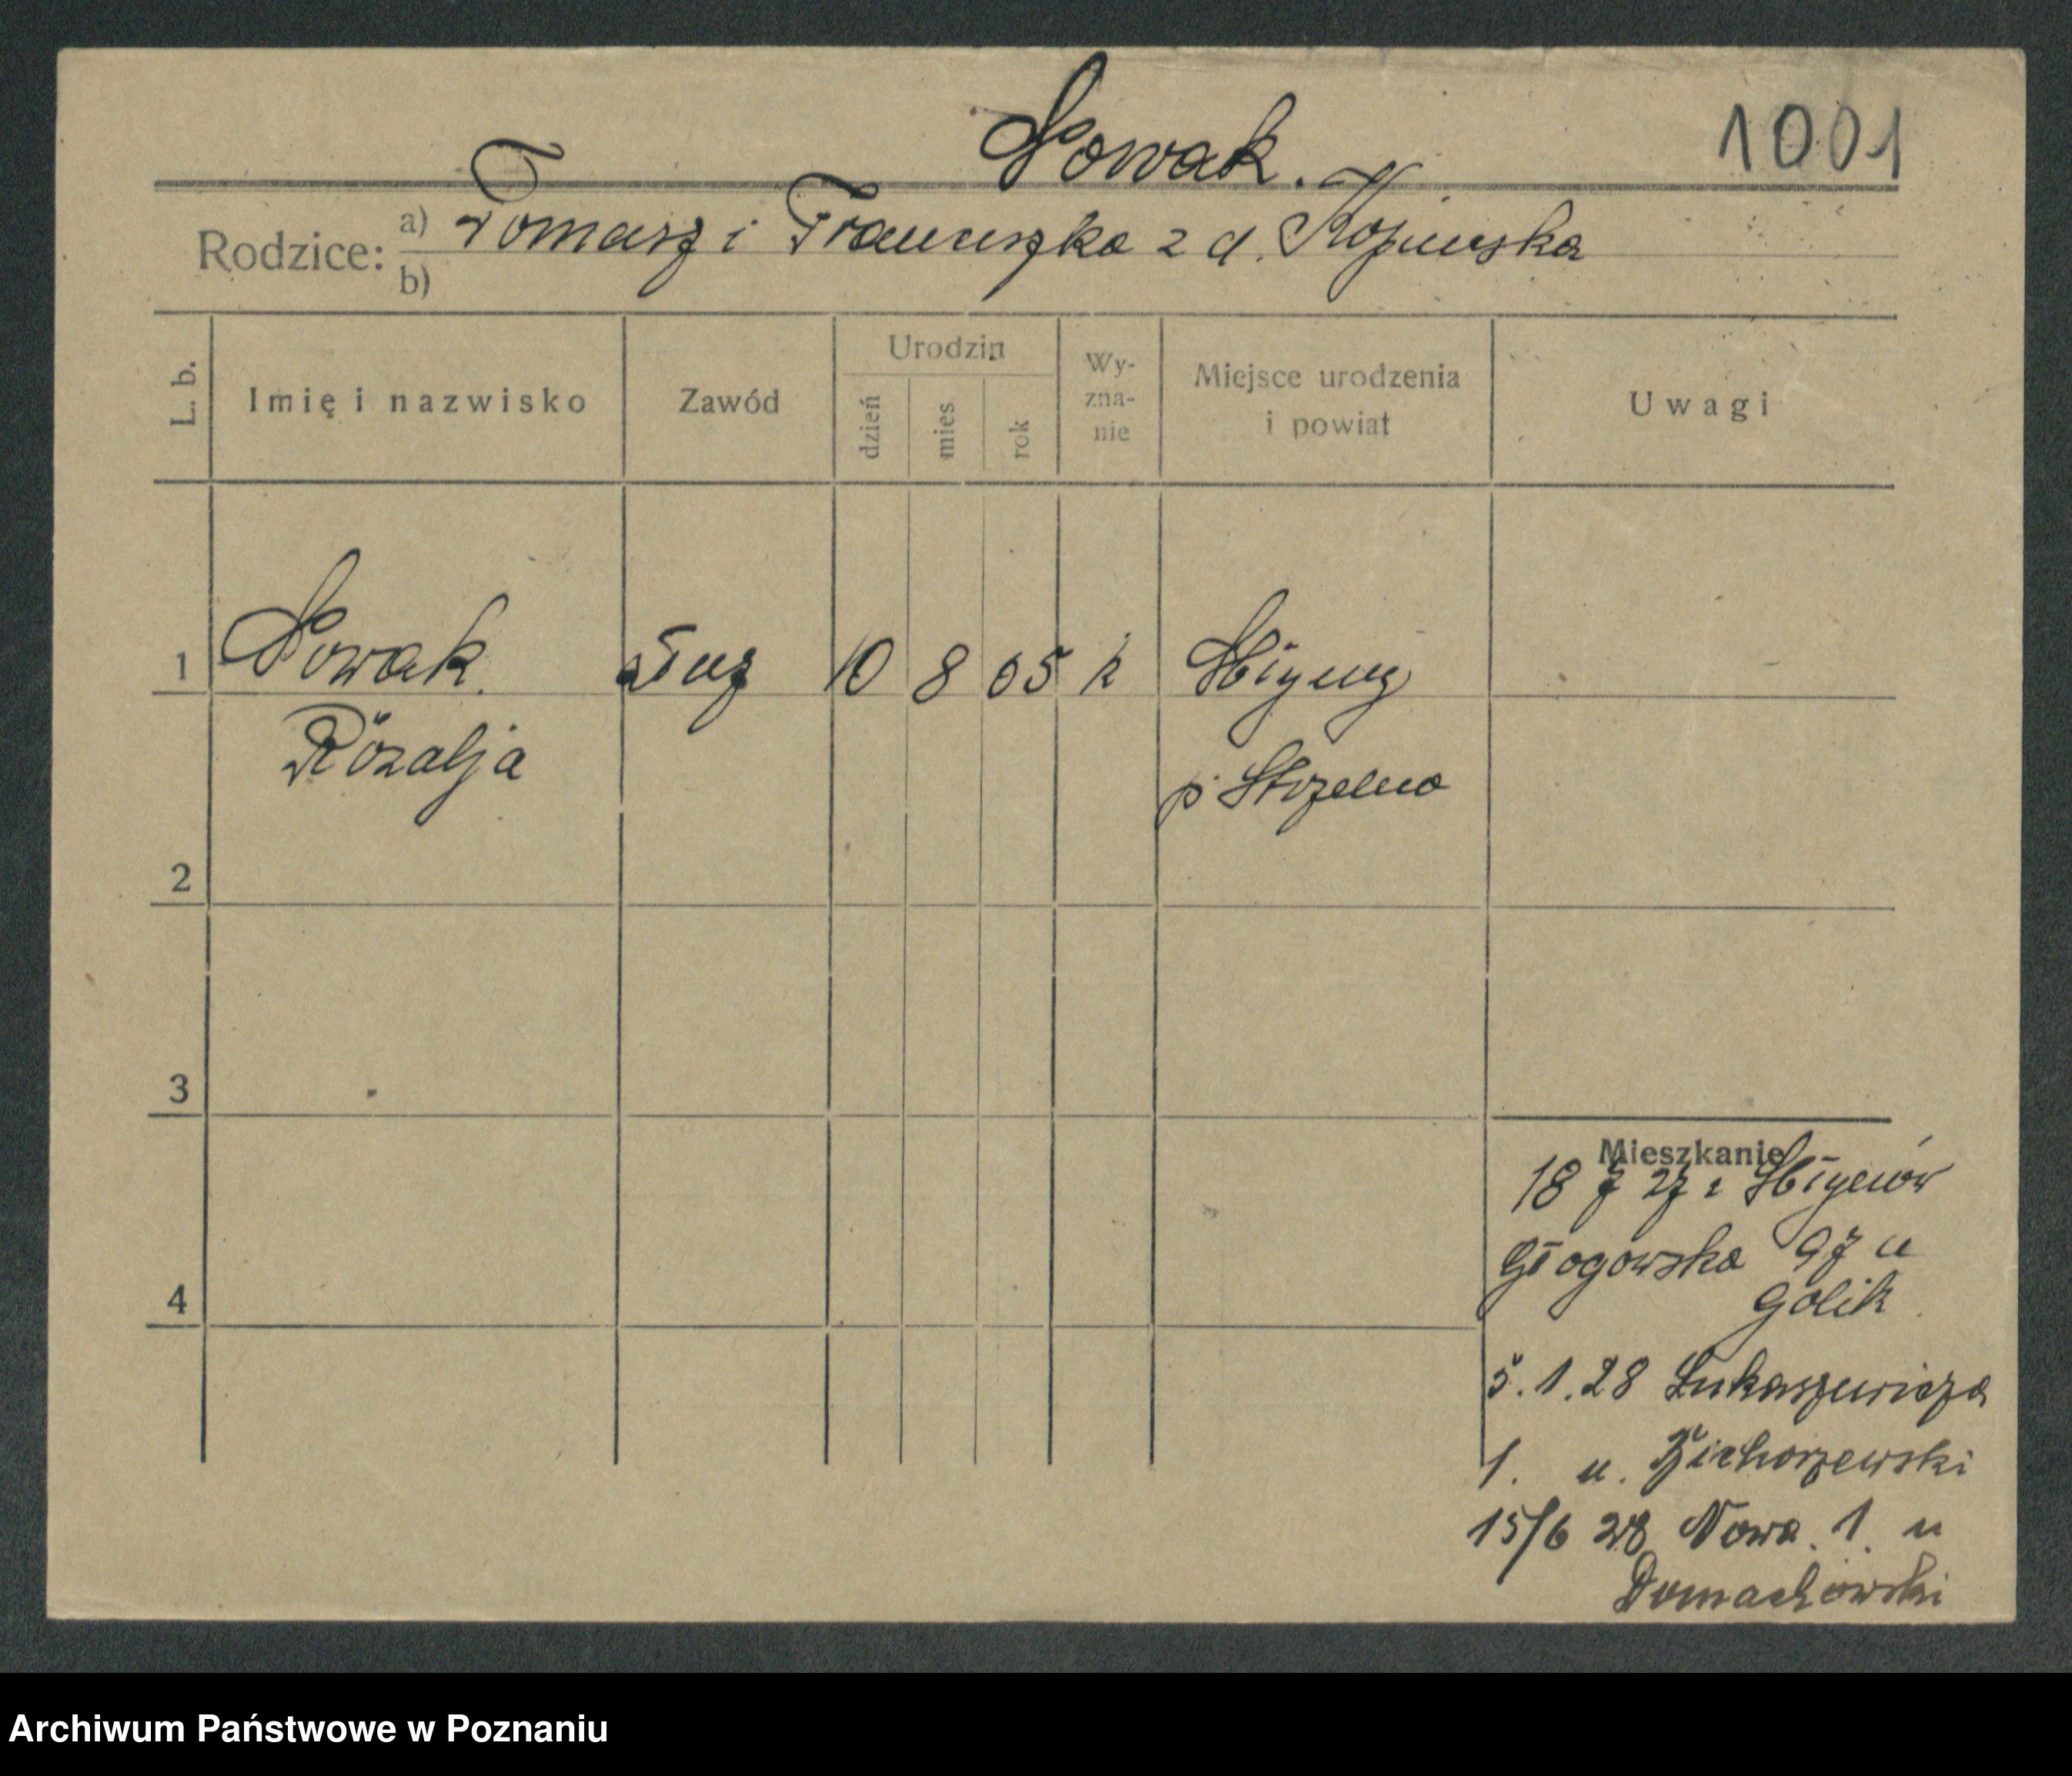 Nowak.
1001
Rodzice: a) Tomasz i Franciszka z d.
b)
L. b.
Imię i nazwisko
Zawód
Urodzin
dzień
mies
rok
Wy-
zna-
nie
Miejsce urodzenia
i powiat
Uwagi
1 Nowak. służ 10 8 05 k
Rózalja p. Strzelno
2
3
4
Mieszkanie
18 7 27 z
Głogowska 97 u
Golik
5.1.28 Łukaszewicza
1. u.
15/6 28 Nowa 1 u
Domachowski
Archiwum Państwowe w Poznaniu